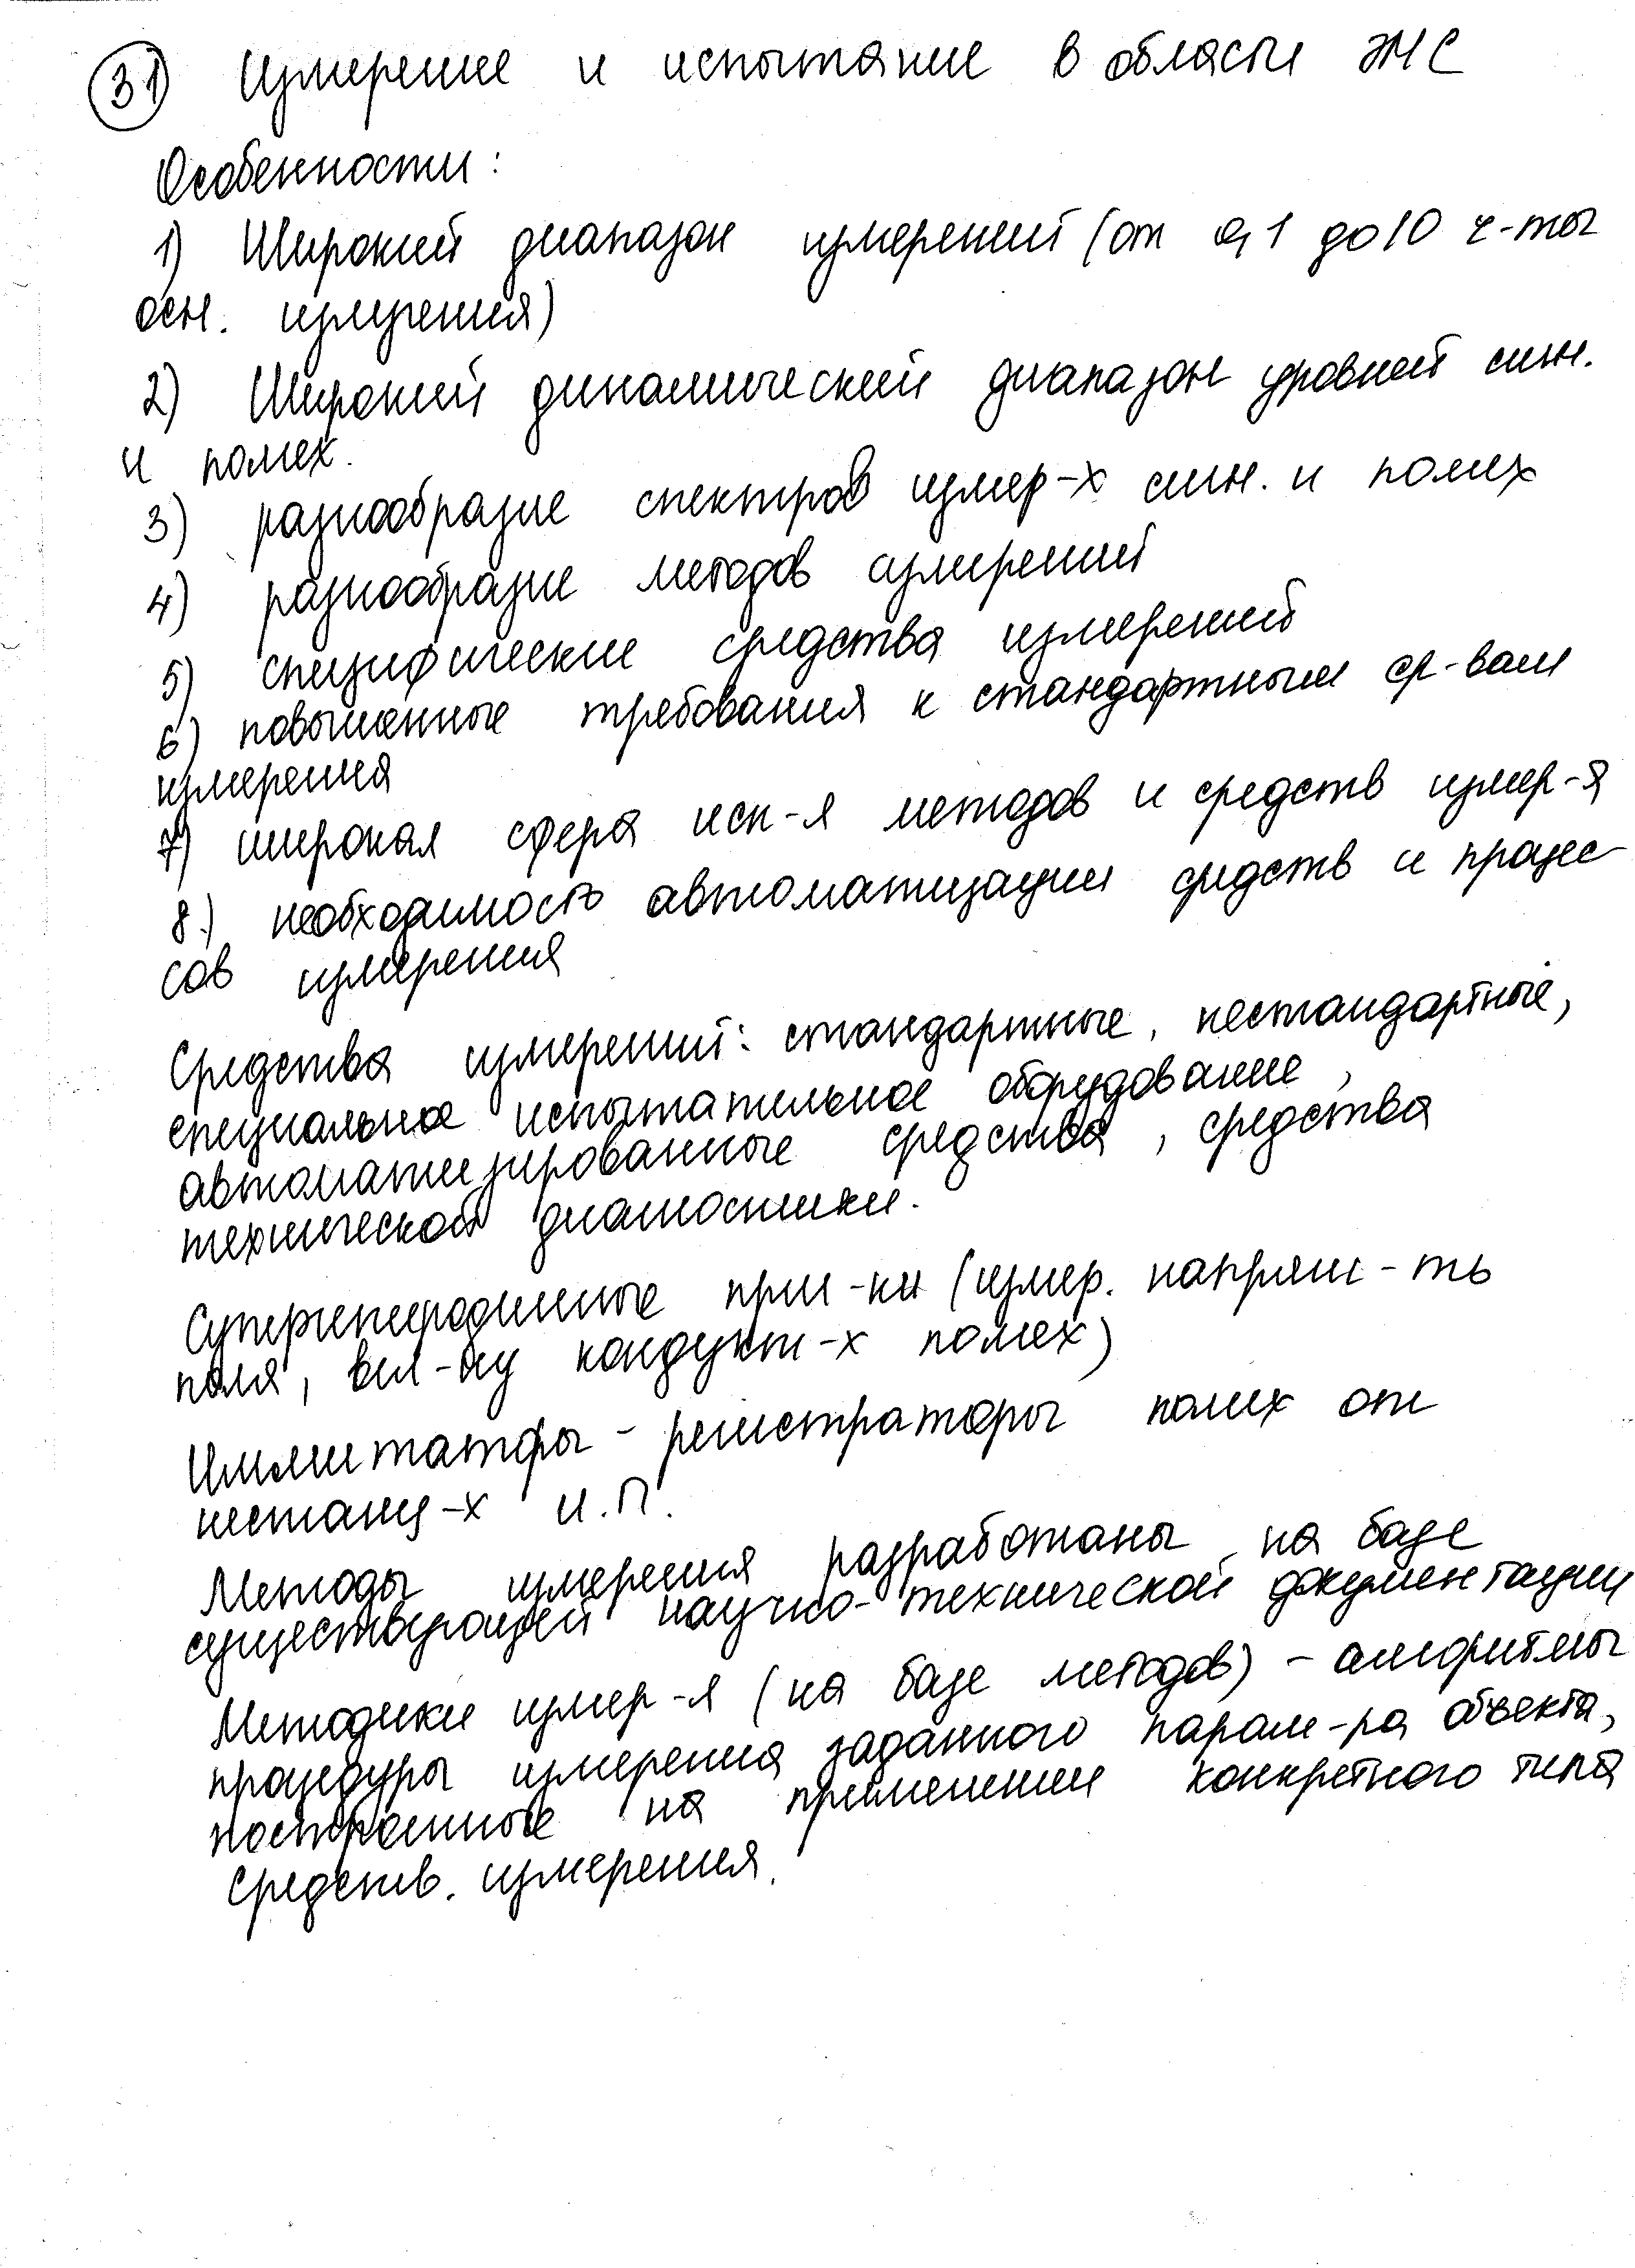 31 Измерение и испытание в области ЭМС
Особенности:
1) Широкий диапазон измерений (от 0,1 до 10 ч-ты
осн. излучения)
2) Широкий динамический диапазон уровней сигн.
и помех.
3) разнообразие спектров измер-х сигн. и помех
4) разнообразие методов измерений
5) специфические средства измерений
6) повышенные требования к стандартным ср-вам
измерения
7) широкая сфера исп-я методов и средств измер-я
8.) необходимость автоматизации средств и процес-
сов измерения
Средства измерений: стандартные, нестандартные,
специальное испытательное оборудование,
автоматизированные средства, средства
технической диагностики.
Супергетеродинные при-ки (измер. напряж-ть
поля, вел-ну кондукт-х помех)
Имитаторы - регистраторы помех от
нестанд-х И.П.
Методы измерения разработаны на базе
существующей научно-технической документации
Методики измер-я (на базе методов) - алгоритмы
процедуры измерения заданного парам-ра объекта,
построенные на применении конкретного типа
средств. измерения.